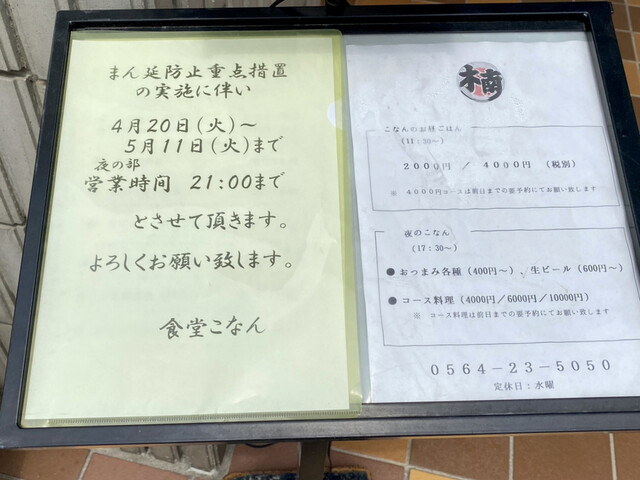 まん延防止重点措置
の実施に伴い
4月20日(火)～
5月11日(火)まで
夜の部
営業時間 21:00まで
とさせて頂きます。
よろしくお願い致します。
食堂こなん
楠
こなんのお昼ごはん
(11:30～)
2000円 / 4000円 (税別)
※ 4000円コースは前日までの要予約にてお願い致します
夜のこなん
(17:30～)
●おつまみ各種(400円～)、生ビール(600円～)
●コース料理(4000円/6000円/10000円)
※ コース料理は前日までの要予約にてお願い致します
0564-23-5050
定休日:水曜